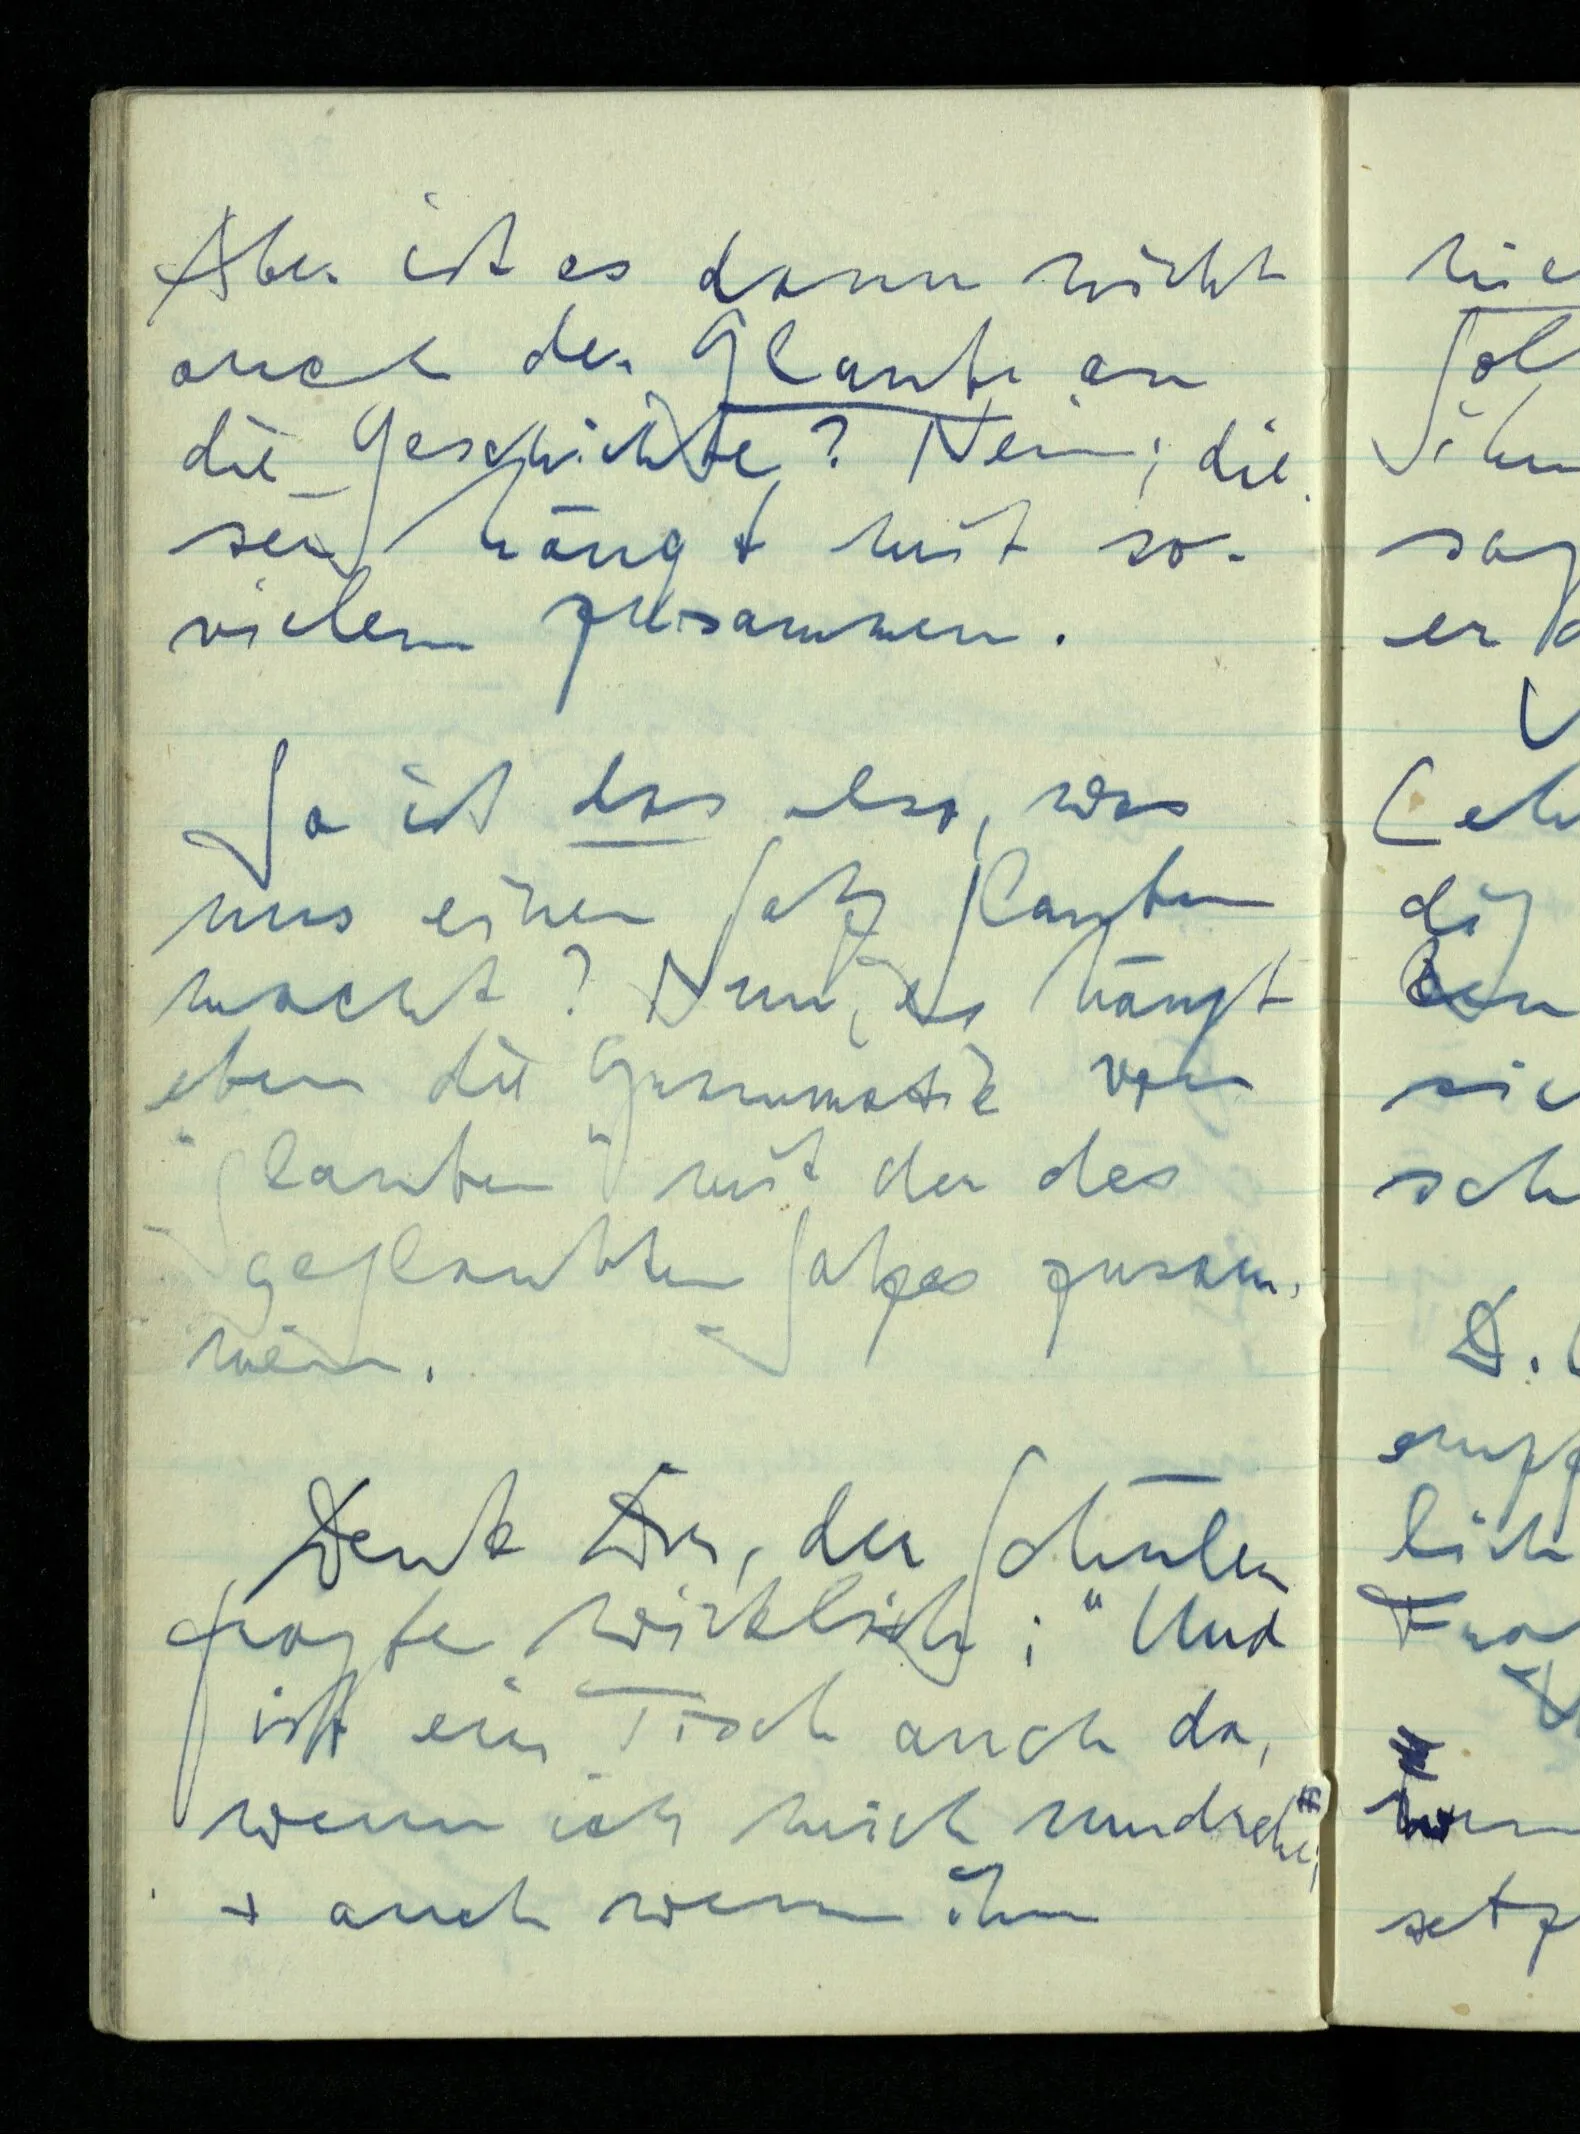 Aber ist es dann nicht
auch der Glaube an
die Geschichte? Nein; die-
ser hängt mit so-
vielem zusammen.
So ist das also, was
uns einen Satz glauben
macht? Nun, es hängt
eben die Grammatik von
"glauben" mit der des
geglaubten Satzes zusam-
men.
Denk Dir, der Schüler
fragte wirklich: "Und
ist ein Tisch auch da,
wenn ich mich umdrehe;
+ auch wenn ihn
sag
er
Leh
sic
sch
empf
lich
Fra
setz